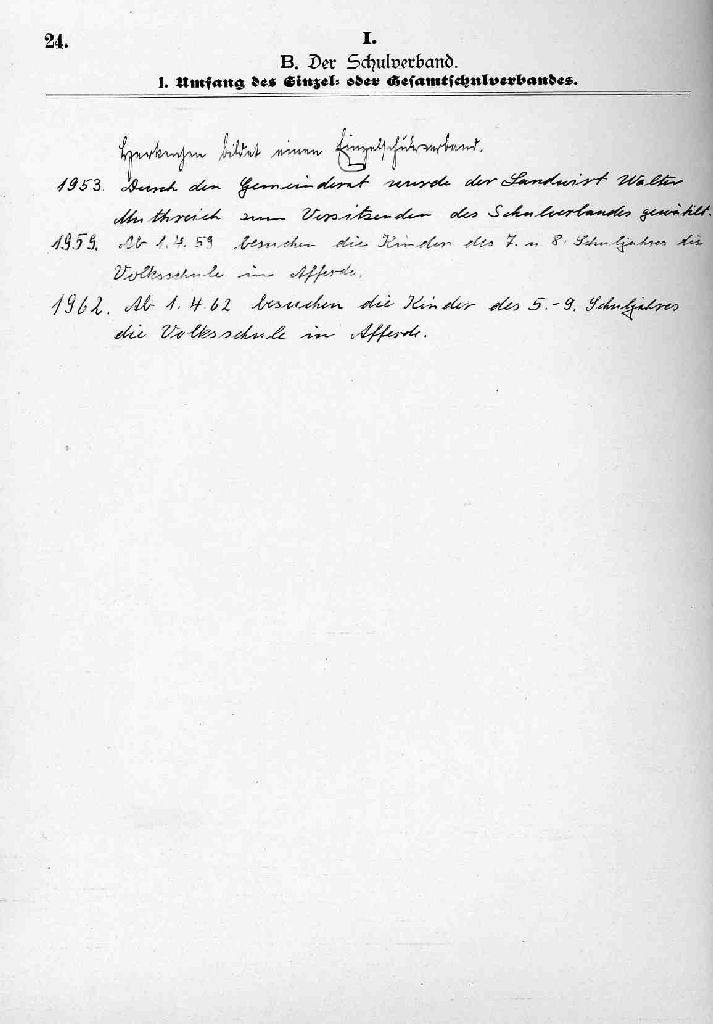 24.
I.
B. Der Schulverband.
1. Umfang des Einzel- oder Gesamtschulverbandes.
bildet einen Einzelschulverband.
1953. Durch den Gemeinderat wurde der Landwirt Walter
zum Vorsitzenden des Schulverbandes gewählt.
1959. Ab 1.4.59 besuchen die Kinder des 7. u 8. Schuljahres die
Volksschule in Afferde.
1962. Ab 1.4.62 besuchen die Kinder des 5.-9. Schuljahres
die Volksschule in Afferde.